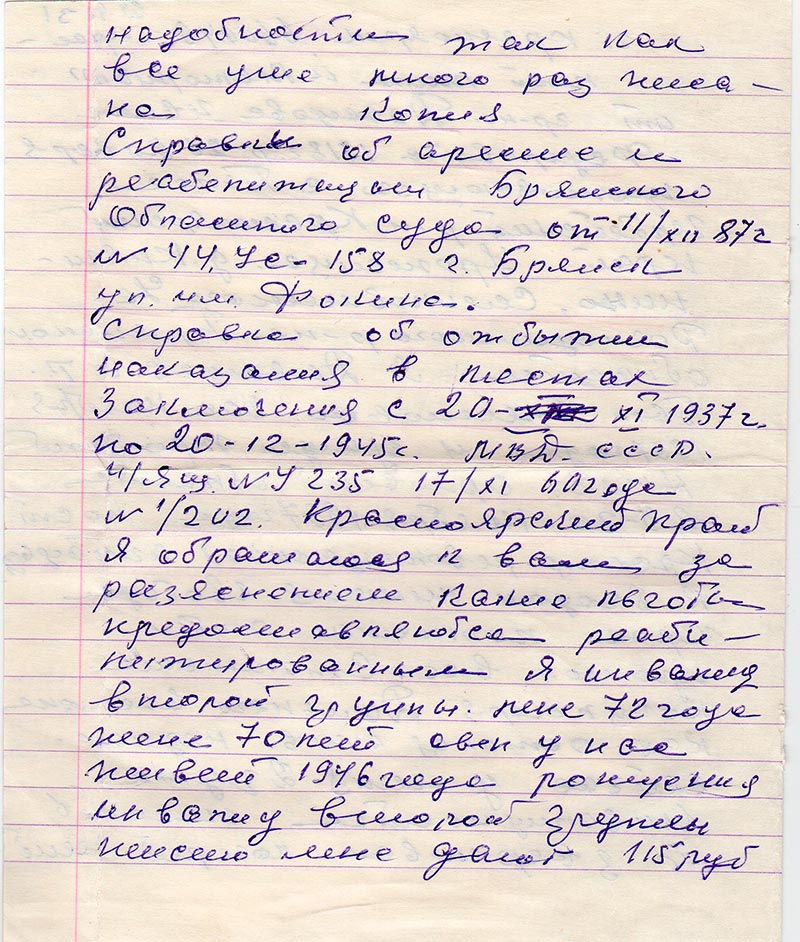 надобности так как
все уже много раз писа-
но Копия
Справки об аресте и
реабелитации Брянского
Областного суда от 11/XII 87г
№ 44, Ус-158 г. Брянск
ул. им. Фокина.
Справка об отбытии
наказания в местах
Заключения с 20- XI 1937г.
по 20-12-1945г. МВД. СССР.
п/Ящ. № У 235 17/XI 60 года
№ 1/202. Красноярский край
Я обращаюся к вам за
разяснением Какие льготы
предоставляются реаби-
литированным Я инвалид
второй группы. мне 72 года
жене 70 лет овен у нас
1946 года рождения
инвалид второй группы
пенсию мне дают 115 руб